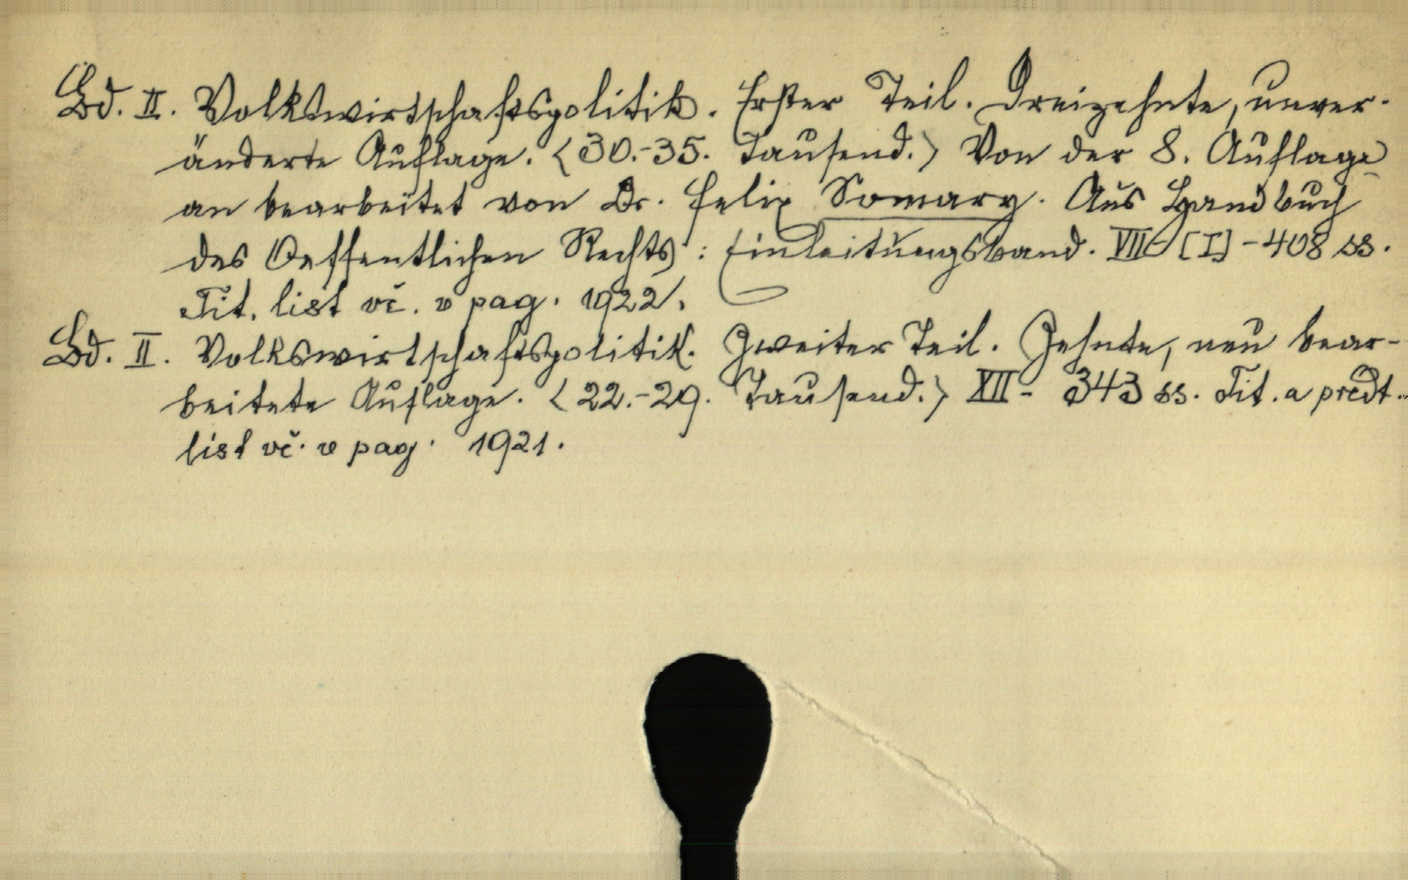 Bd. II. Volkswirtschaftspolitik. Erster Teil. Dreizehnte, unver-
änderte Auflage. <30.-35. Tausend.> Von der 8. Auflage
an bearbeitet von Dr. Felix Somary. Aus Handbuch
des Oeffentlichen Rechts: Einleitungsband. VIII-[I]-408 ss.
Tit. list vč. v pag. 1922.
Bd. II. Volkswirtschaftspolitik. Zweiter Teil. Zehnte, neu bear-
beitete Auflage. <22.-29. Tausend.> XII- 343 ss. Tit. a předt.
list vč. v pag. 1921.